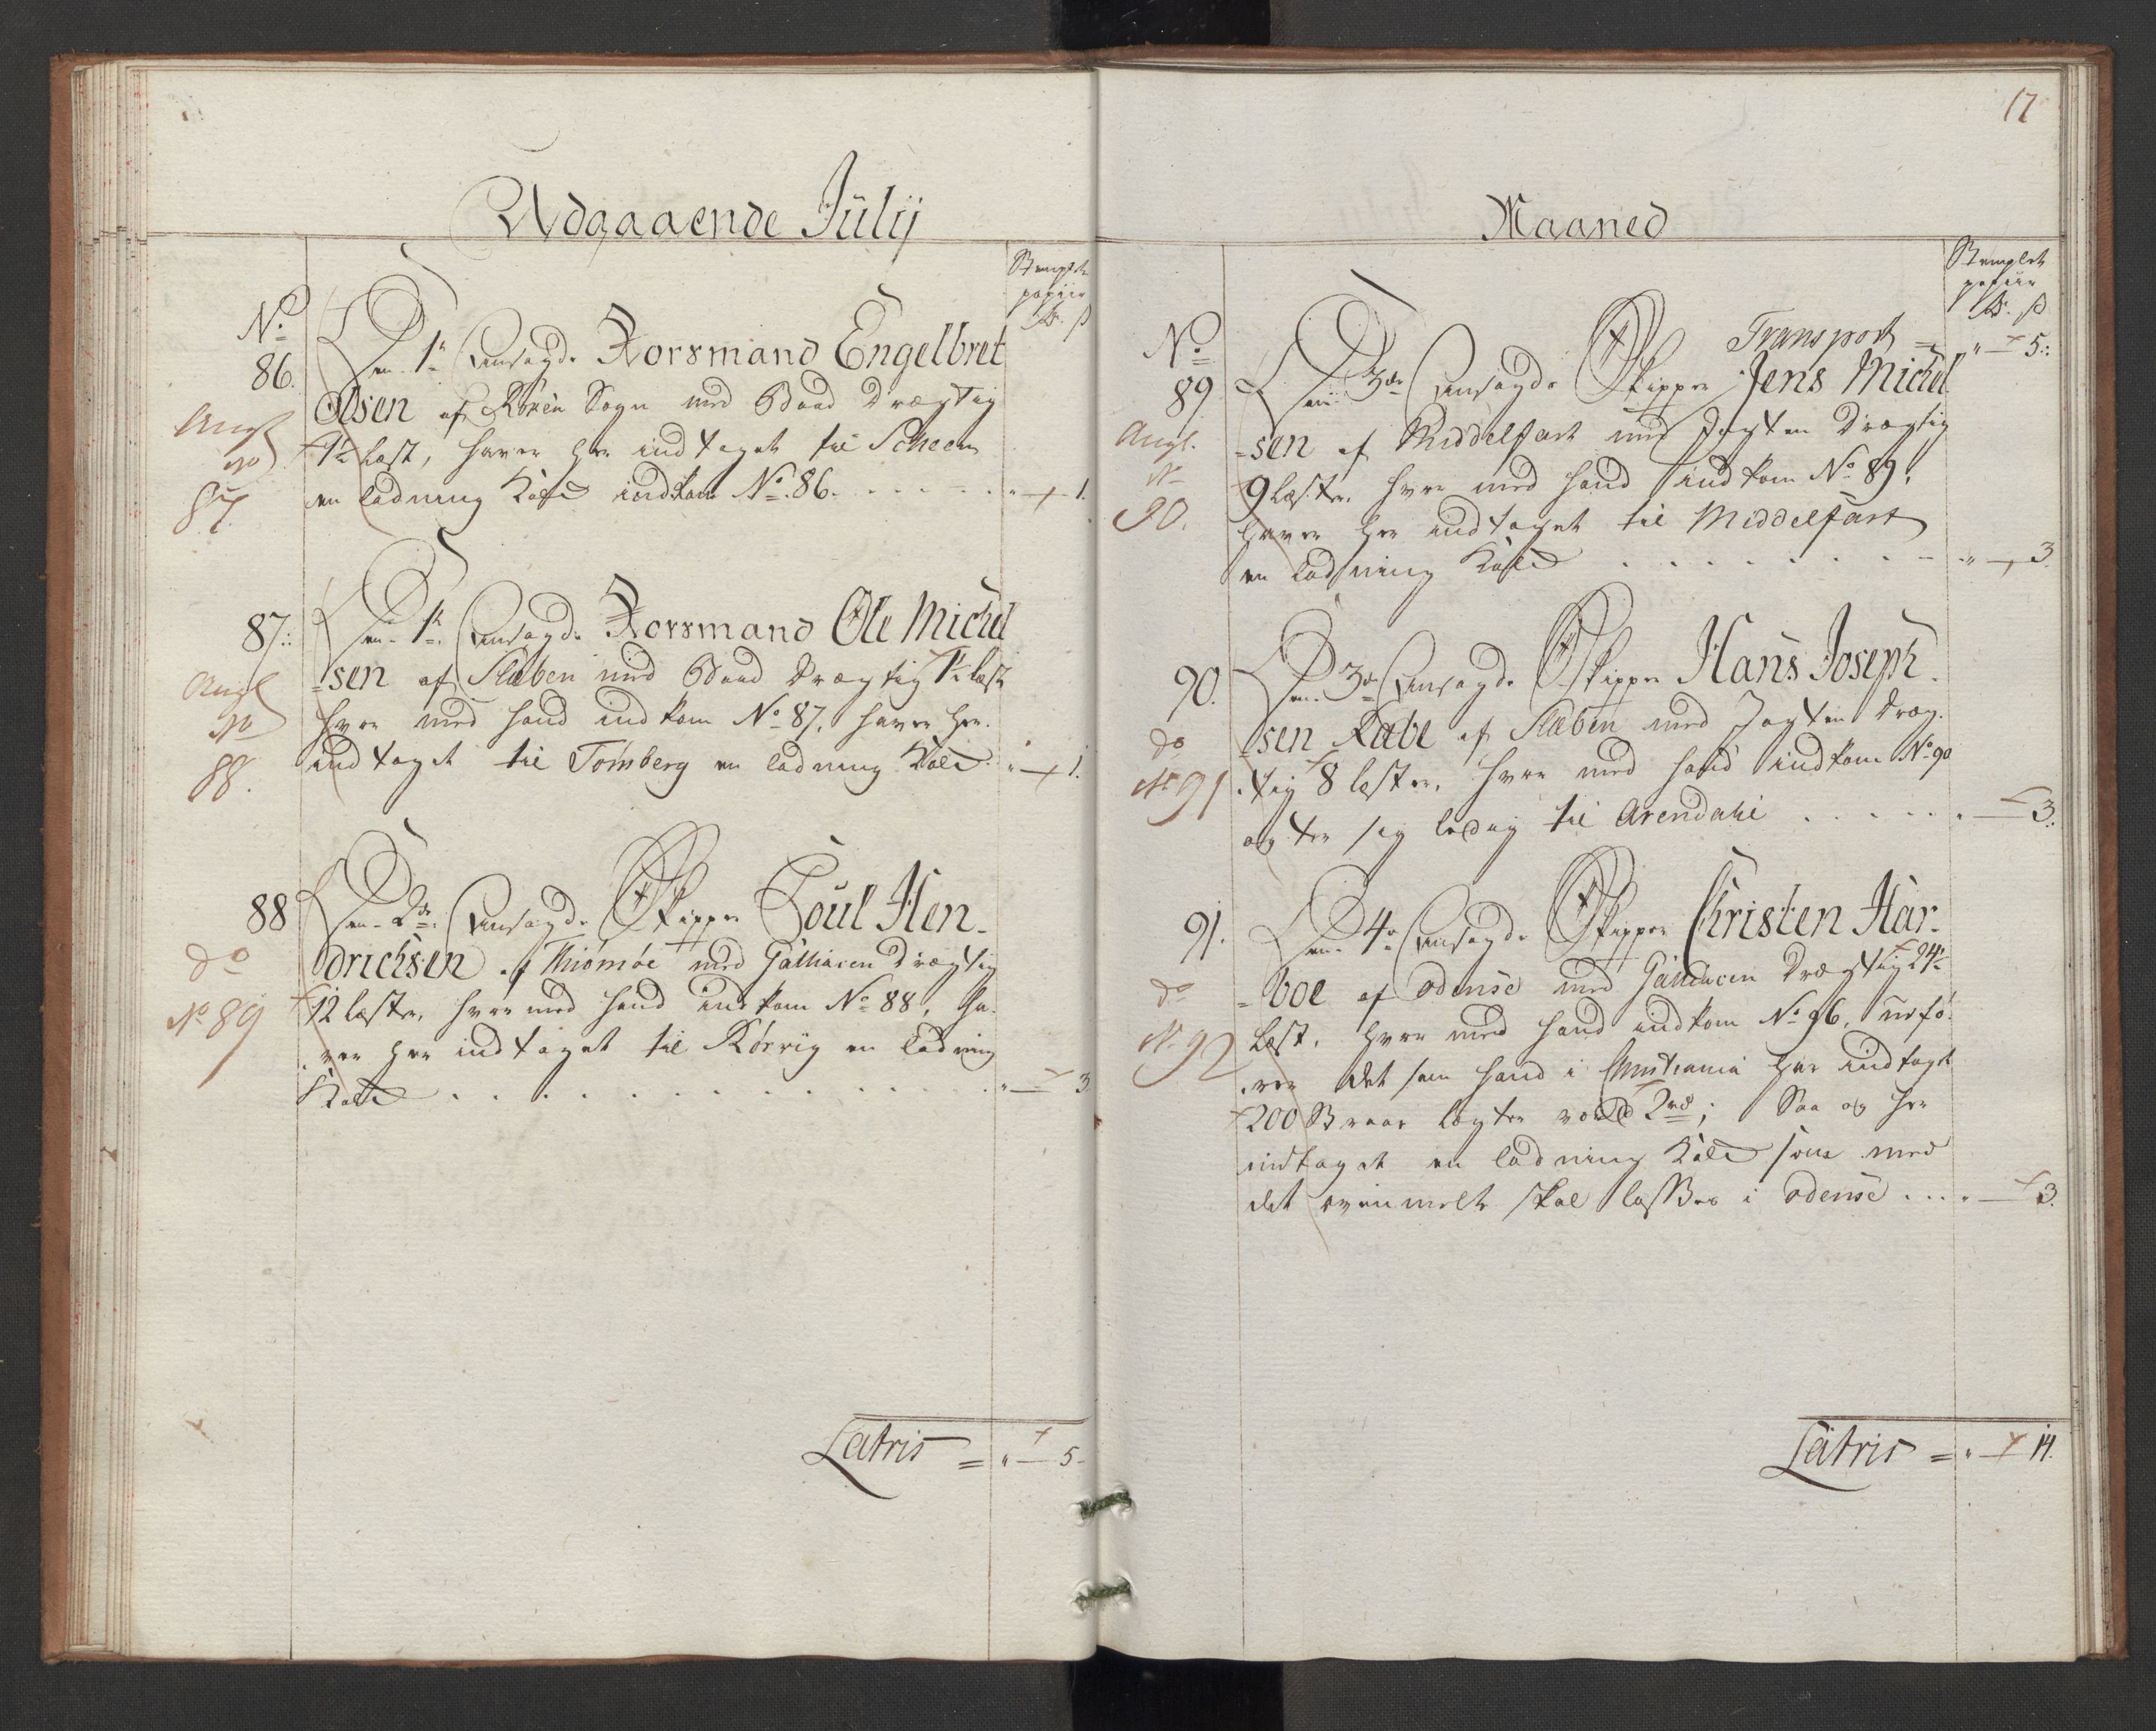 Udgaaende Jülij
Stemplet
papiir
Rd. ß
No
86.
Den 1e Ansagde Norsmand Engelbret
Olsen af Röken Sogn med Baad Drægtig
1½ Læst, haver her indtaget til Scheen
en ladning Kald indkom No. 86. " — 1.
Angl
No
87.
87.
Den 1e Ansagde Norsmand Ole Michel
-sen af Slæben med Baad Drægtig 1½ Læst
hvor med hand indkom No 87, haver her
indtaget til Tönsberg en ladning Kald " — 1.
Angl
No
88.
88
Den 2de Ansagde Skipper Poul Hen-
drichsen af Thiömöe med Galliasen Drægtig
12 Læster, hvor med hand indkom No 88, ha-
ver her indtaget til Rörvig en Ladning
Kald " — 3
do
No 89
Latris = " — 5
17
Maaned
Stemplet
papiir
Rd. ß
Transport = " — 5
No
89
Den 3de Ansagde Skipper Jens Michel
-sen af Middelfart med Jagten Drægtig
9 Læster, hvor med hand indkom No 89,
haver her indtaget til Middelfart
en Ladning Kald " — 3
Angl.
No
90.
90.
Den 3de Ansagde Skipper Hans Joseph-
-sen Rabe af Slæben med Jagten Dræg-
tig 8 Læster, hvor med hand indkom No 90
agter sig ledig til Arendahl " — 3
do
No 91
91.
Den 4de Ansagde Skipper Christen Har-
-boe af Odense med Galliasen Drægtig 24½
Læst, hvor med hand indkom No 96, udfö-
rer det som hand i Christiania har indtaget
200 Staar lægter værd 2rd; Saa og her
indtaget en ladning Kald som med
det ovenmelte skal losses i Odense " — 3.
do
No 92
Latris = " — 14.